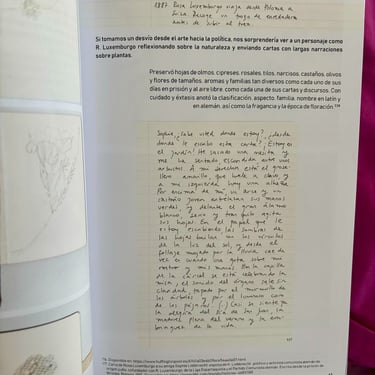 1887 Rosa Luxemburgo viaja desde Polonia a
Suiza. Recoge un trozo de enredadera
antes de subir al tren.
Si tomamos un desvío desde el arte hacia la política, nos sorprendería ver a un personaje como
R. Luxemburgo reflexionando sobre la naturaleza y enviando cartas con largas narraciones
sobre plantas.
Preservó hojas de olmos, cipreses, rosales, tilos, narcisos, castaños, olivos
y flores de tamaños, aromas y familias tan diversos como cada uno de sus
días en prisión y al aire libre, como cada una de sus cartas y discursos. Con
cuidado y éxtasis anotó la clasificación, aspecto, familia, nombre en latín y
en alemán, así como la fragancia y la época de floración.
Sophie ¿sabe usted dónde estoy?, ¿desde
dónde le escribo esta carta? ¡Estoy en
el jardín! He sacado una mesita y
me he sentado, escondida entre unos
arbustos. A mi derecha está el grose-
llero amarillo, que huele a clavo, y
a mi izquierda hay una alheña.
Por encima de mí, un arce y un
castaño joven entrelazan sus manos
verdes, y delante el gran álamo
blanco, serio y tranquilo agita
sus hojas. En el papel que le
estoy escribiendo las sombras de
las hojas bailan con los círculos
de la luz del sol, y desde el
follaje mojado por la lluvia cae de
vez en cuando una gota sobre mi
rostro y mis manos. En la capilla
de la cárcel se está celebrando la
misa, el sonido del órgano sale
apagado por el murmullo de
los árboles y por el luminoso coro
de los pájaros. (...) Casi se siente ya
la alegría del día de San Juan, la
madurez plena del verano y la em-
briaguez de la vida.